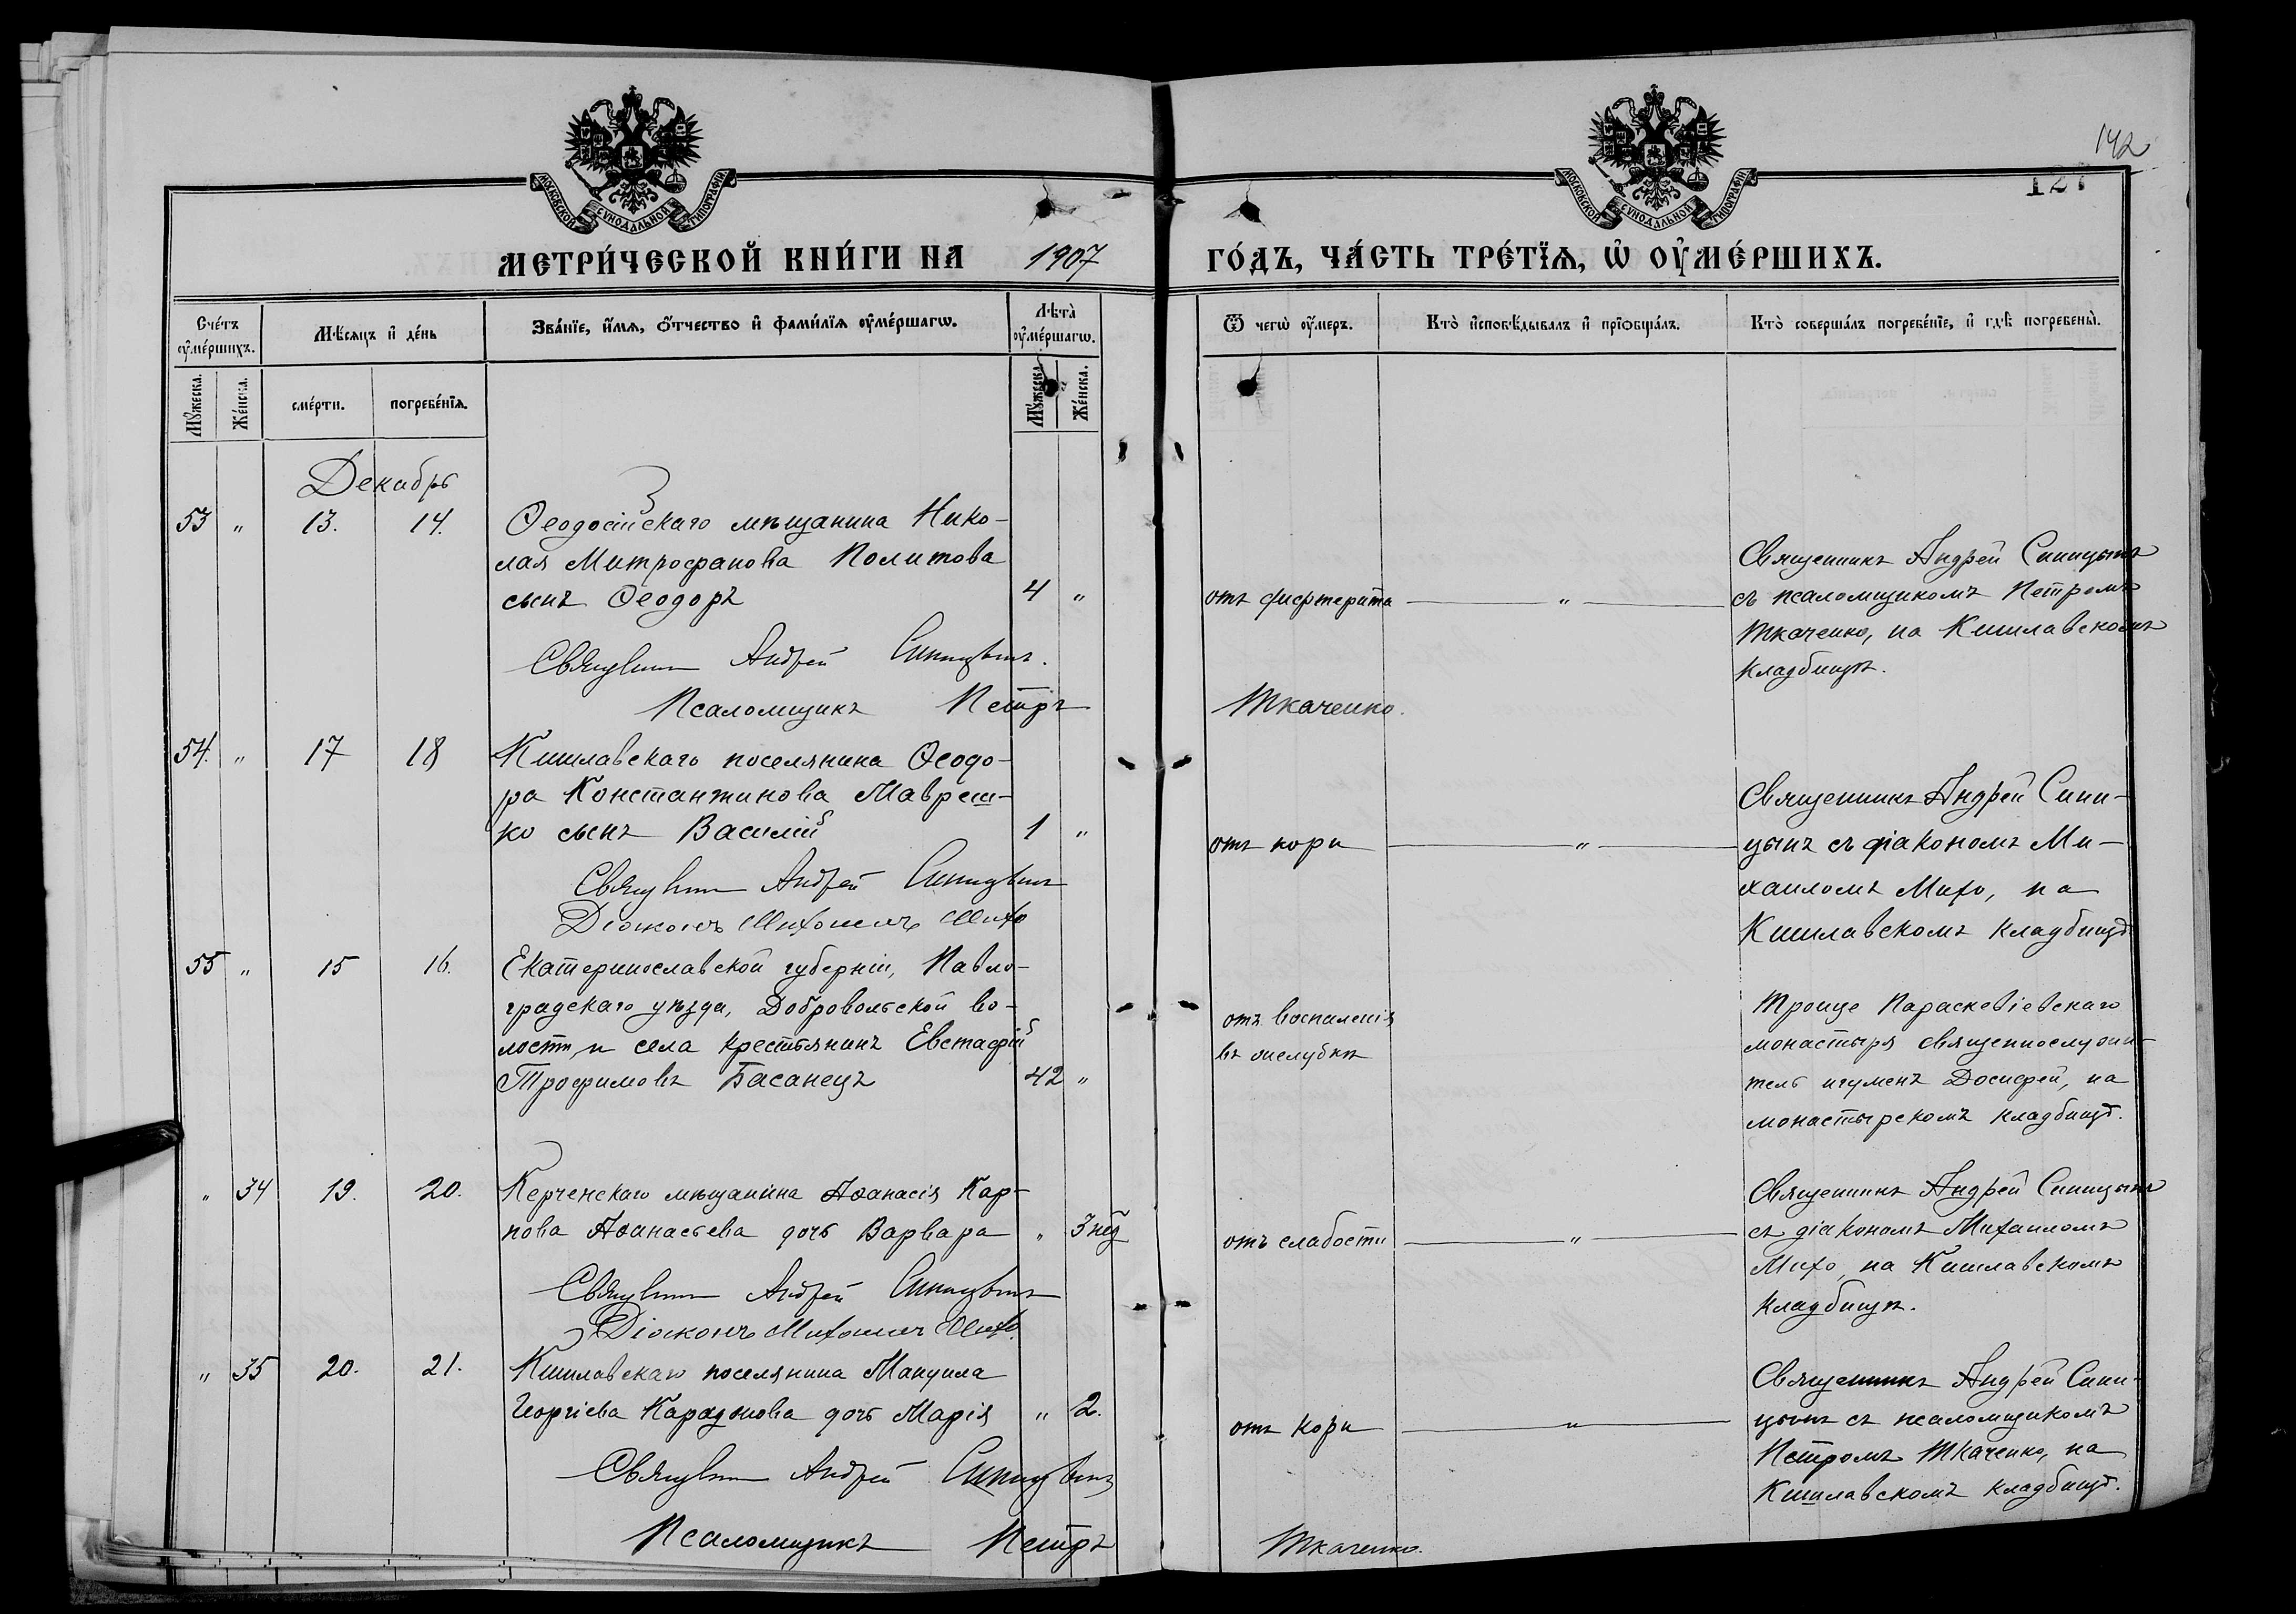 142
127
МОСКОВСКОЙ СѴНОДАЛЬНОЙ ТИПОГРАФІИ
МОСКОВСКОЙ СѴНОДАЛЬНОЙ ТИПОГРАФІИ
МЕТРИ́ЧЕСКОЙ КНИ́ГИ НА 1907 ГО́ДЪ, ЧА́СТЬ ТРЕ́ТЇѦ, Ѡ҆ ОУ҆МЕ́РШИХЪ.
Сче́тъ оу҆ме́ршихъ.
Мѣ́сѧцъ и҆ де́нь
Зва́нїе, и҆́мѧ, ѻ҆́тчество и҆ фами́лїѧ оу҆ме́ршагѡ.
Лѣта̀ оу҆ме́ршагѡ.
Ѿ чегѡ̀ оу҆́меръ.
Кто̀ и҆сповѣ́дывалъ и҆ прїѡбща́лъ.
Кто̀ соверша́лъ погребе́нїе, и҆ гдѣ̀ погребены̀.
Мꙋ́жеска.
Же́нска.
сме́рти.
погребе́нїѧ.
Мꙋ́жеска.
Же́нска.
Декабрь
53 " 13. 14. Ѳеодосійскаго мѣщанина Нико-
лая Митрофанова Политова
сынъ Ѳеодоръ 4 " отъ дифтерита — " —
Священникъ Андрей Синицынъ
съ псаломщикомъ Петромъ
Ткаченко, на Кишлавскомъ
кладбищѣ.
Священникъ Андрей Синицынъ.
Псаломщикъ Петръ Ткаченко.
54. " 17 18 Кишлавскаго поселянина Ѳеодо-
ра Константинова Мавреш-
ко сынъ Василій 1 " отъ кори — " —
Священникъ Андрей Сини-
цынъ съ діакономъ Ми-
хаиломъ Михо, на
Кишлавскомъ кладбищѣ
Священникъ Андрей Синицынъ
Діаконъ Михаилъ Михо
55 " 15 16. Екатеринославской губерніи, Павло-
градскаго уѣзда, Добровольской во-
лости и села крестьянинъ Евстафій
Трофимовъ Басанецъ 42 "
отъ воспаленія
въ желудкѣ
Троице Параскевіевскаго
монастыря священнослужи-
тель игуменъ Досифей, на
монастырскомъ кладбищѣ.
" 34 19. 20. Керченскаго мѣщанина Аѳанасія Кар-
пова Аѳанасьева дочь Варвара " 3 нед отъ слабости — " —
Священникъ Андрей Синицынъ
съ діакономъ Михаиломъ
Михо, на Кишлавскомъ
кладбищѣ.
Священникъ Андрей Синицынъ
Діаконъ Михаилъ Михо.
" 35 20. 21. Кишлавскаго поселянина Мануила
Георгіева Караджова дочь Марія " 2. отъ кори — " —
Священникъ Андрей Сини-
цынъ съ псаломщикомъ
Петромъ Ткаченко, на
Кишлавскомъ кладбищѣ.
Священникъ Андрей Синицынъ
Псаломщикъ Петръ Ткаченко.